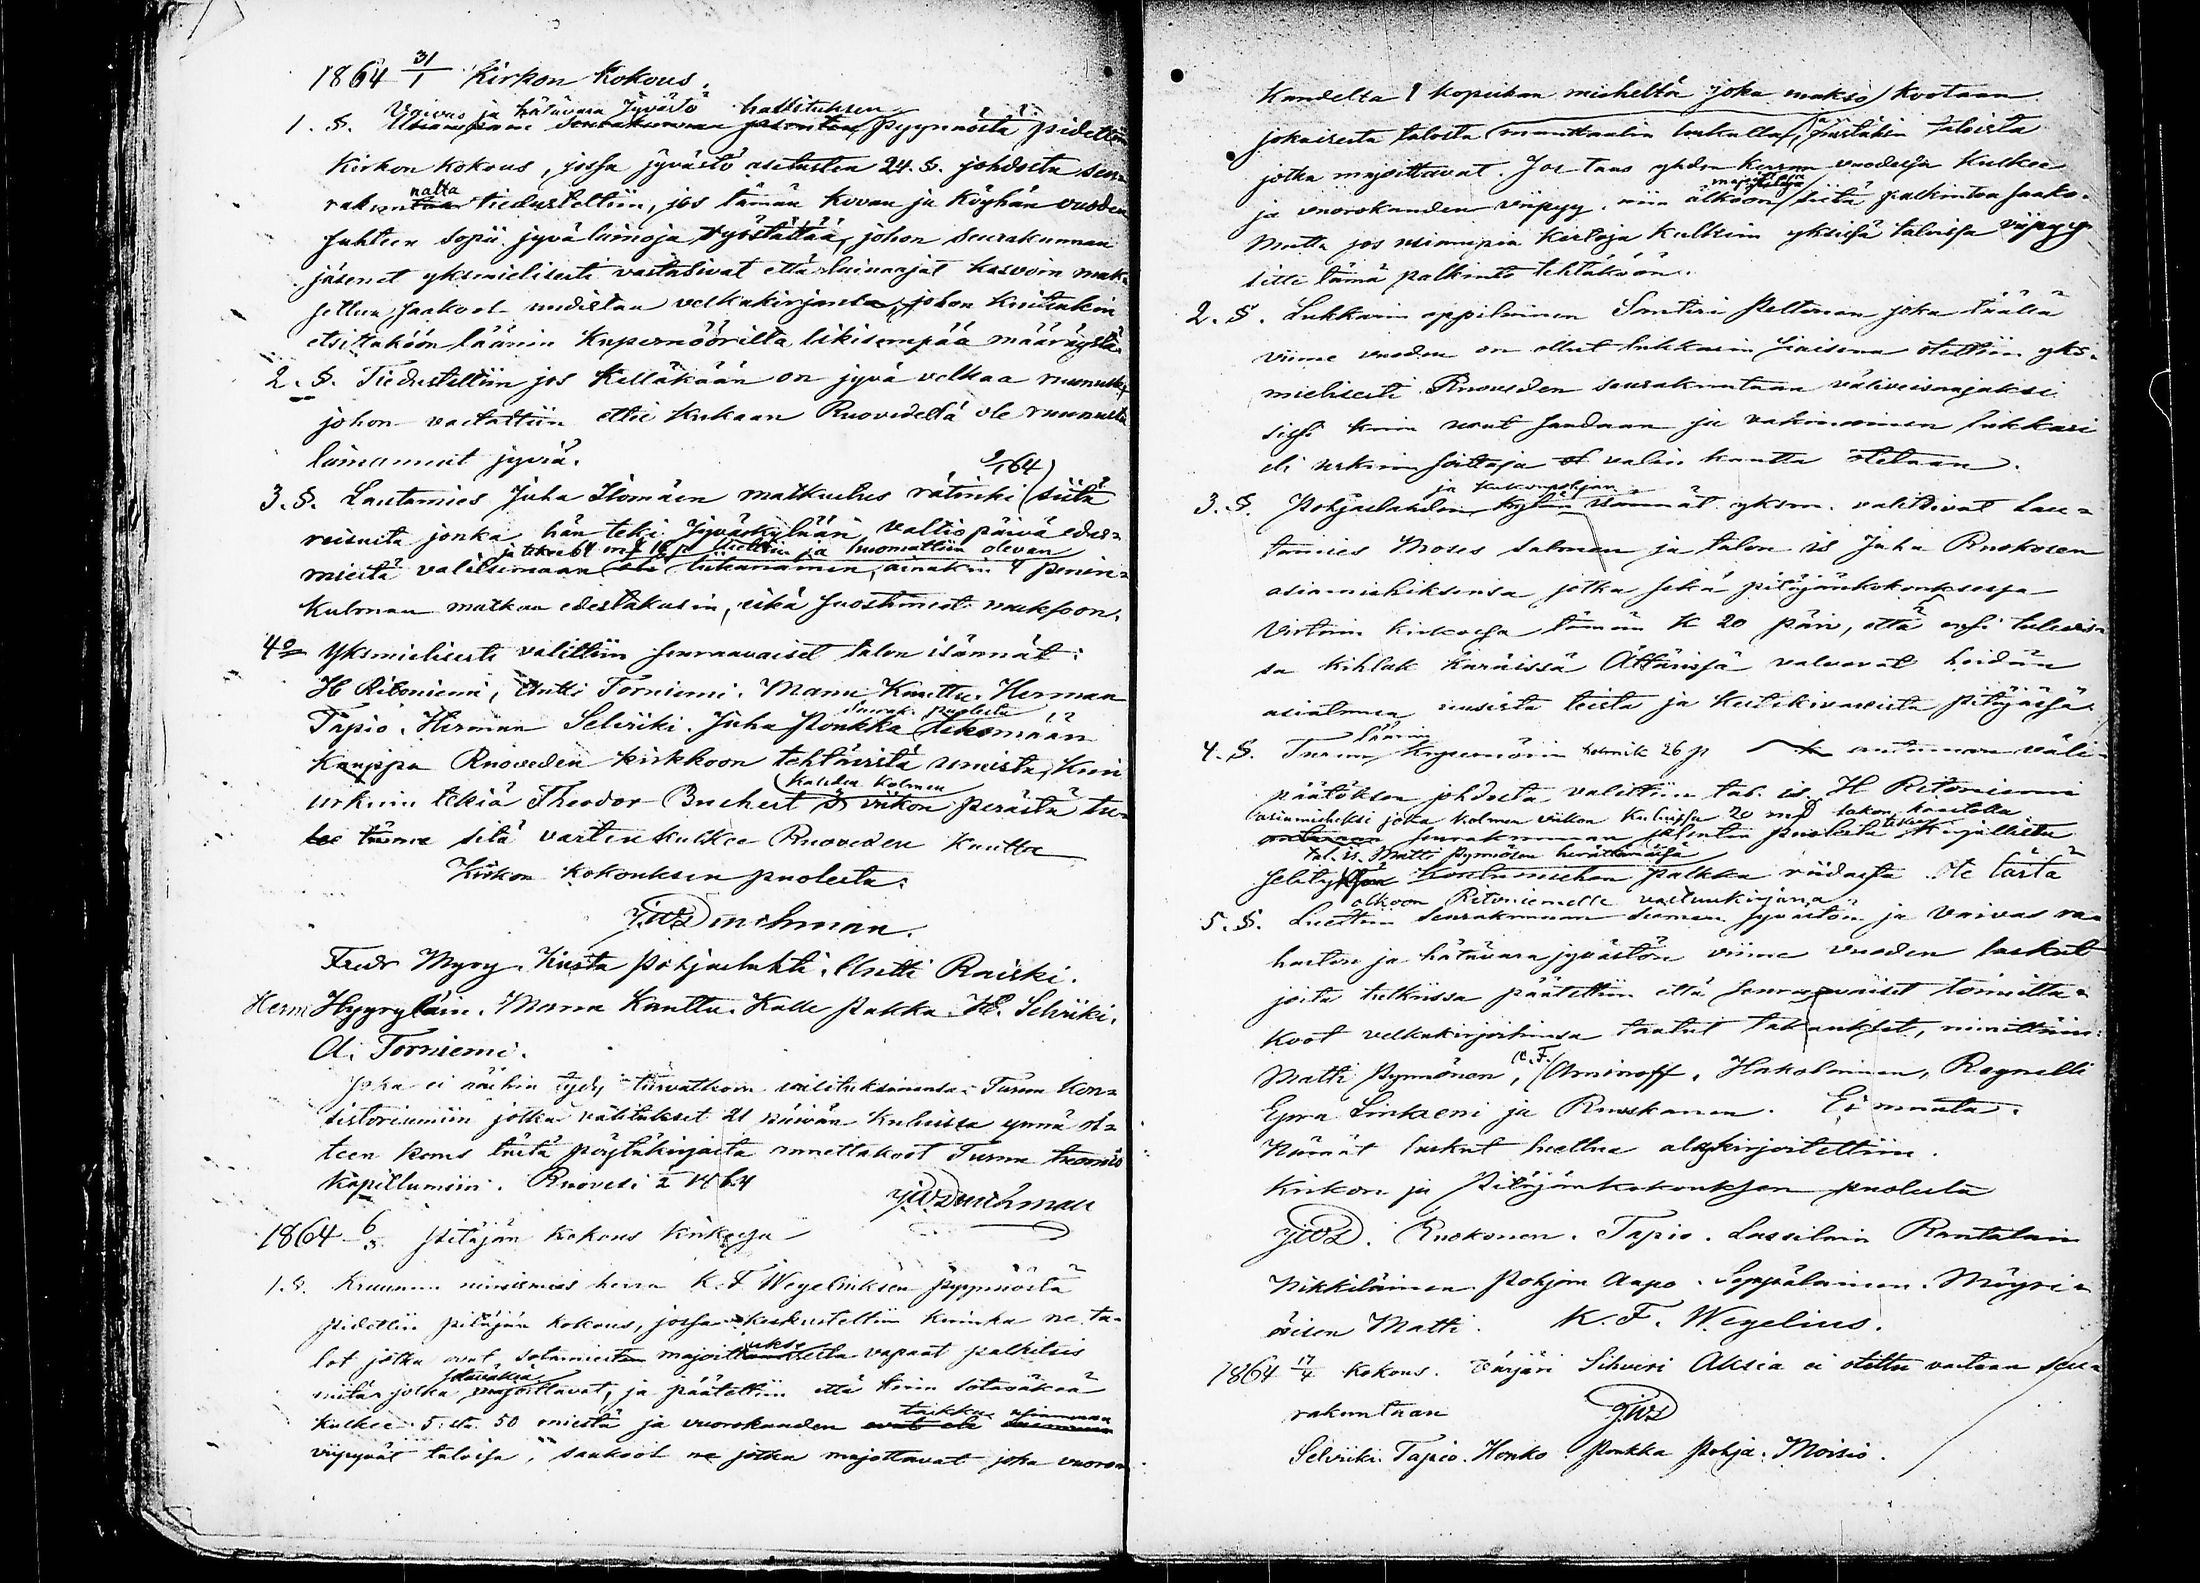 1864 31/1 Kirkon Kokous.
Vaivas ja hätävara Jyvästö hallituksen
1. §. pyynnöstä pidettiin
Kirkon kokous, jossa jyvästö asetusten 24. §. johdosta seu-
rakunnalta tiedusteltiin, jos tämän kovan ja köyhän vuoden
suhteen sopii jyvälainoja ryöstättää, johon Seurakunnan
jäsenet yksmielisesti vastasivat että lainaajat kasvoin mak-
settua saakoot uudistaa velkakirjansa, johon kuitenkin
etsittäköön läänin Kupernööriltä likisempää määräystä.
2. §. Tiedusteltiin jos Kelläkään on jyvä velkaa ruunulle,
johon vastattiin ettei kukaan Ruovedellä ole ruunulta
lainannut jyviä.
3. §. Lautamies Juha Ilomäen matkustus rätinki siitä
reisusta jonka hän teki Jyväskylään valtiopäivä edus-
miestä valitsemaan ja huomattiin olevan
liikanainen, ainakin 4 penin-
kulman matkan edestakasin, eikä suostuneet maksoon.
4o Yksmielisesti valittiin seuraavaiset talon isännät:
H Ritoniemi, Antti Torniemi. Manu Kauttu. Herman
Tapio. Herman Selviiki. Juha Poukka Seurak. puolesta tekemään
Kauppa Ruoveden kirkkoon tehtävistä uruista, kuin
urkuin tekiä Theodor Buchert kahden kolmen viikon perästä tu-
lee sitä varten kulkee Ruoveden kautta
Kirkon kokouksen puolesta:
J.W. Durchman.
Fredr Myry. Kusta Pohjaslahti. Antti Raiski.
Herm Hyyryläin. Manu Kauttu. Kalle Pukka. H. Selviiki.
A. Torniemi.
Joka ei näihin tydy turvatkoon valituksinensa Turun Kon-
sistoriumiin jotka valitukset 21 päivän kuluissa ynnä ot-
teen kans tästä pöytäkirjasta annettakoot Turun tuomio
kapitlumiin. Ruovesi 1864
J.W. Durchman
1864 6/3 Pitäjän kokous kirkossa
1. §. Kruunun nimismies herra K. F Wegeliuksen pyynnöstä
pidettiin pitäjän kokous, jossa keskusteltiin kuinka ne ta-
lot jotka ovat sotamiesten majoituksesta vapaat palkitsis
niitä jotka sotaväkiä majoittavat, ja päätettiin että kuin sotaväkeä
kulkee 5:stä 50 miestä ja vuorokauden taikka useamman
viipyvät talossa, saakoot ne jotka majottavat joka vuoro-
Kaudelta 1 kopeikan mieheltä joka makso kootaan
jokaisesta talosta manttaalin luvulla, taloista
jotka majoittavat. Jos taas yhden kerran vuodessa kulkee
ja vuorokauden viipyy niin älköön majoittaja siitä palkintoa saako.
Mutta jos useampia kertoja kulkein yksissä taloissa viipyy
sitte tämä palkinto tehtäköön.
2. §. Lukkarin oppilainen Santeri Peltonen joka täällä
viime vuoden on ollut lukkarin siaisena otettiin yks-
mielisesti Ruoveden seurakuntaan väliveisaajaksi
siksi kuin urut saadaan ja vakinainen lukkari
eli urkuin soittaja valin kautta otetaan.
3. §. Pohjaslahden ja Kukonpohjan isännät yksm. valitsivat Lau-
tamies Moses Salmen ja talon is Juha Ruokosen
asiamieheksensä jotka sekä pitäjänkokouksessa
Virtain kirkossa tämän K 20 päiv, että ensi tulevis-
sa kihlak käräissä Ättärissä valvovat heidän
asiatansa uusista teistä ja kestikievareista pitäjässä.
4. §. Turun läänin Kupernörin helmik 26 p antaman väli-
päätöksen johdosta valittiin tal. is. H Ritoniemi
asiamieheksi joka kolmen viikon kuluissa 20 mk sakon haastolla
seurakunnan puolesta kirjallista
tal. is. Matti Pynnösen herättämässä
selitystä palkka riidassa. Ote tästä
olkoon Ritoniemelle valtuuskirjana
5. §. Luettiin seurakunnan siemen jyvästön ja Vaivas ra-
haston ja hätävara jyvästön viime vuoden laskut
joita tutkiissa päätettiin että seuraavaiset toimitta-
koot velkakirjoihinsa taatut takaukset, nimittäin:
Matti Pynnönen, C.F. Aminoff, Hakolainen, Regnelli
Epra Linkaeni ja Ruoskanen. Ei muuta.
Nämät laskut luettua allekirjoitettiin.
Kirkon ja Pitäjänkokouksen puolesta
JWD. Ruokonen. Tapio. Lassilain Rantalain
Nikkiläinen Pohjan Aapo. Seppälainen. Möyri-
öisen Matti. K. F. Wegelius.
1864 17/4 kokous. Värjäri Sihveri Alcsia ei otettu vastaan seu-
rakuntaan JWD
Selviiki. Tapio. Honko. Poukka Pohja. Moisio.